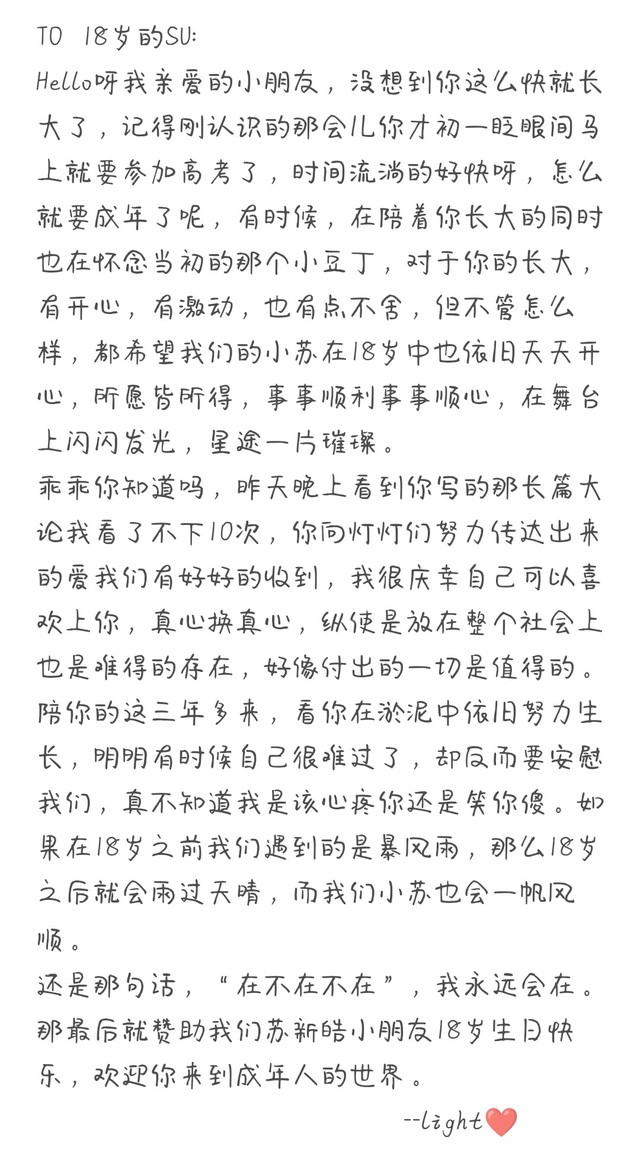 TO 18岁的SU:
Hello呀我亲爱的小朋友，没想到你这么快就长
大了，记得刚认识的那会儿你才初一眨眼间马
上就要参加高考了，时间流淌的好快呀，怎么
就要成年了呢，有时候，在陪着你长大的同时
也在怀念当初的那个小豆丁，对于你的长大，
有开心，有激动，也有点不舍，但不管怎么
样，都希望我们的小苏在18岁中也依旧天天开
心，所愿皆所得，事事顺利事事顺心，在舞台
上闪闪发光，星途一片璀璨。
乖乖你知道吗，昨天晚上看到你写的那长篇大
论我看了不下10次，你向灯灯们努力传达出来
的爱我们有好好的收到，我很庆幸自己可以喜
欢上你，真心换真心，纵使是放在整个社会上
也是难得的存在，好像付出的一切是值得的。
陪你的这三年多来，看你在淤泥中依旧努力生
长，明明有时候自己很难过了，却反而要安慰
我们，真不知道我是该心疼你还是笑你傻。如
果在18岁之前我们遇到的是暴风雨，那么18岁
之后就会雨过天晴，而我们小苏也会一帆风
顺。
还是那句话，“在不在不在”，我永远会在。
那最后就赞助我们苏新皓小朋友18岁生日快
乐，欢迎你来到成年人的世界。
--light❤️